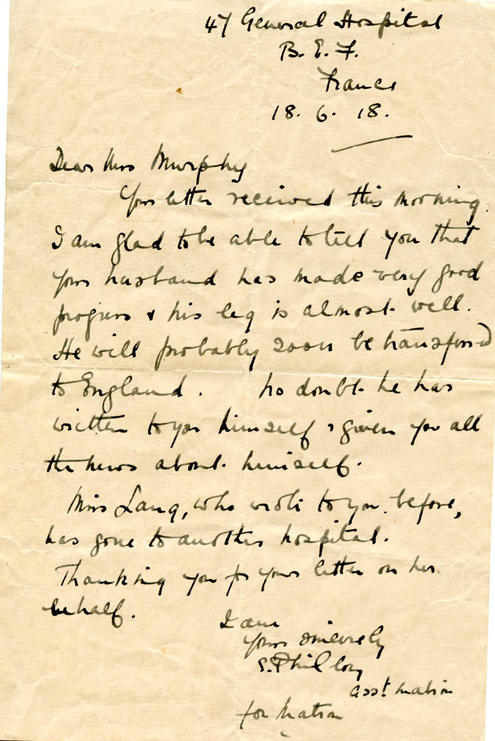 47 General Hospital
B. E. F.
France
18. 6. 18.
Dear Mrs Murphy
Your letter received this morning.
I am glad to be able to tell you that
your husband has made very good
progress & his leg is almost well.
He will probably soon be transferred
to England. No doubt he has
written to you himself & given you all
the news about himself.
Miss Lang, who wrote to you before,
has gone to another hospital.
Thanking you for your letter on her
behalf.
I am
Yours sincerely
S.
Asst Matron
for Matron